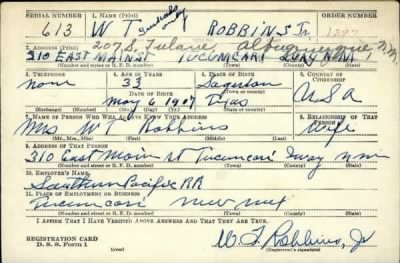 SERIAL NUMBER 1. NAME (Print) ORDER NUMBER
613 W T Initials only ROBBINS Jr. 1397
2. ADDRESS (Print) 207 S. Tulane, Albuquerque, N.M.
310 EAST MAIN ST TUCUMCARI QUAY N M
(Number and street or R. F. D. number) (Town) (County) (State)
3. TELEPHONE 4. AGE IN YEARS 5. PLACE OF BIRTH 6. COUNTRY OF CITIZENSHIP
None 33 Sagerton USA
DATE OF BIRTH
May 6 1907 Texas
(Exchange) (Number) (Mo.) (Day) (Yr.) (State or country)
7. NAME OF PERSON WHO WILL ALWAYS KNOW YOUR ADDRESS 8. RELATIONSHIP OF THAT PERSON
Mrs W T Robbins Wife
(Mr., Mrs., Miss) (First) (Middle) (Last)
9. ADDRESS OF THAT PERSON
310 East Main St Tucumcari Quay N M
(Number and street or R. F. D. number) (Town) (County) (State)
10. EMPLOYER'S NAME
Southern Pacific RR
11. PLACE OF EMPLOYMENT OR BUSINESS
Tucumcari New Mex
(Number and street or R. F. D. number) (Town) (County) (State)
I AFFIRM THAT I HAVE VERIFIED ABOVE ANSWERS AND THAT THEY ARE TRUE.
REGISTRATION CARD
D. S. S. Form 1
W. T. Robbins, Jr
(Registrant's signature)